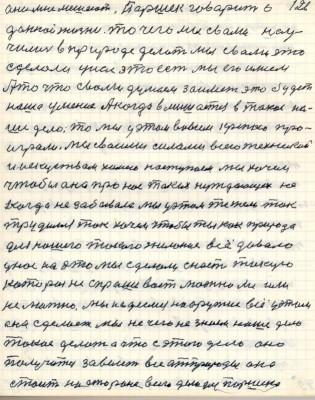 она мне мешает, Паршек говарить о 121
данной жизни. то чего мы с вами
в природе делат мы с вами это
сделали у нас это ест мы его имеем
А то что с вами думаем займет это будет
наше умение А когда вмишается в такое на-
ше дело, то мы у этом вовсем крепко про-
играли. мы своими силами всего техникой
и искуством химию наступаем мы хочем
чтобы она про нас таких нуждающех не
когда не забавала мы у этом так
трудимся так хочем чтобы ты как природа
для нашего такого жилания всё давала
у нас на это мы сделали снасть такую
каторая не спрашивает можно ли или
не можно, мы надеемся на оружие всё у этим
она сделает, мы не чего не знаем наше дело
такое делат а что с этого дело оно
получится зависит все от природы она
стоит на стороне всего дела для Паршека